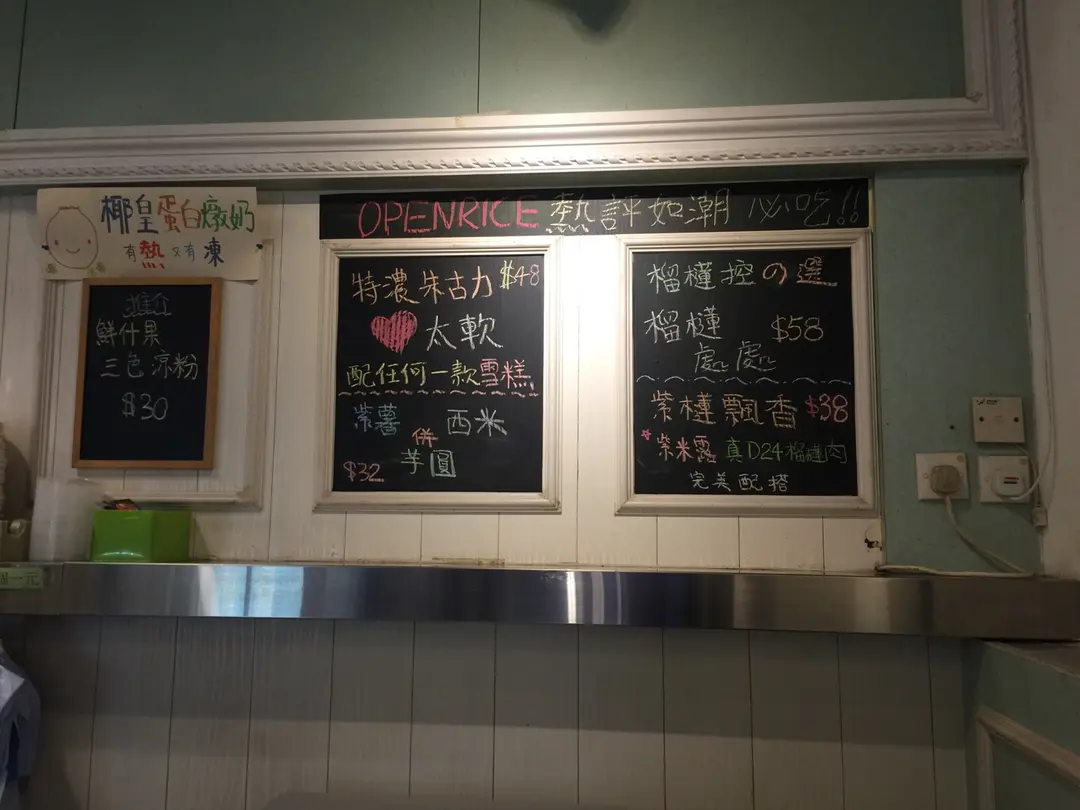 椰皇蛋白燉奶
有熱又有凍
推介
鮮什果
三色涼粉
$30
OPENRICE熱評如潮 必吃!!
特濃朱古力 $48
太軟
配任何一款雪糕
紫薯 西米
併
芋圓
$32
榴槤控の選
榴槤 $58
處處
紫槤飄香 $38
紫米露 真D24榴槤肉
完美配搭
一元